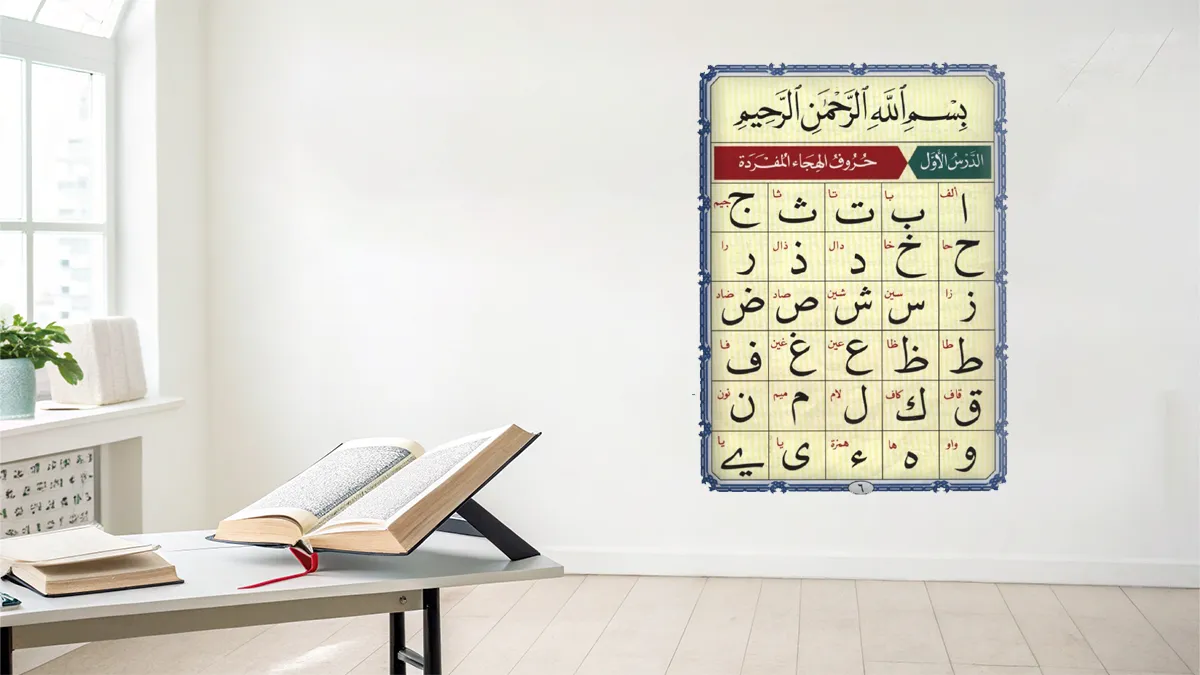 بِسْمِ ٱللَّهِ ٱلرَّحْمَٰنِ ٱلرَّحِيمِ
الدَّرْسُ الْأَوَّل حُرُوفُ الهِجَاء المُفْرَدَة
ألف ا با ب تا ت ثا ث جيم ج
حا ح خا خ دال د ذال ذ را ر
زا ز سين س شين ش صاد ص ضاد ض
طا ط ظا ظ عين ع غين غ فا ف
قاف ق كاف ك لام ل ميم م نون ن
واو و ها ه همزة ء يا ى يا ے
٦